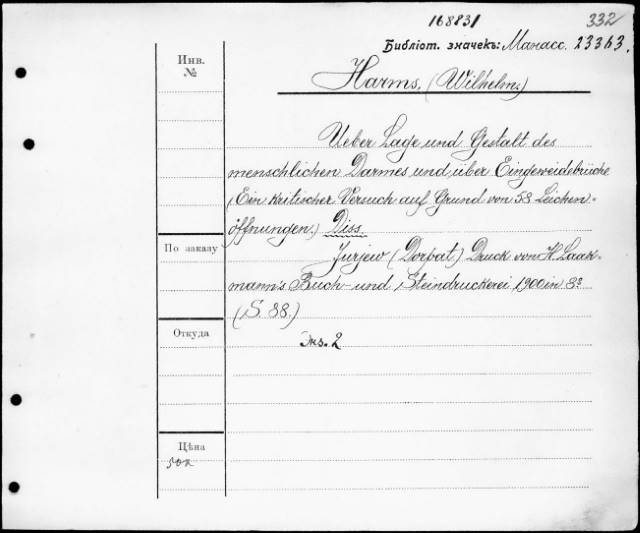 168831
332
Библіот. значекъ: Манасс. 23363.
Инв. №
Harms, (Wilhelm.)
Ueber Lage und Gestalt des
menschlichen Darmes und über Eingeweidebrüche
(Ein kritischer Versuch auf Grund von 58 Leichen-
öffnungen.) Diss.
По заказу
Jurjew (Dorpat.) Druck von H. Laak-
mann's Buch- und Steindruckerei 1900 in 8º
(S. 88.)
Откуда
Экз. 2
Цѣна
50к